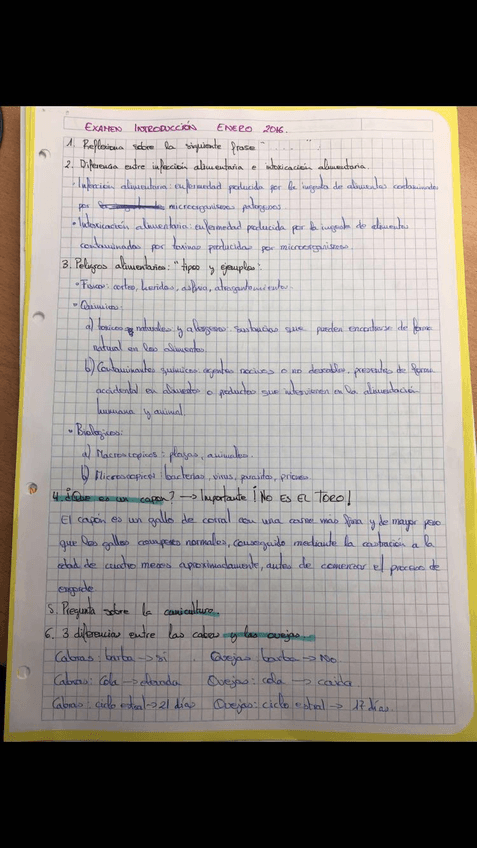 EXAMEN INTRODUCCIÓN ENERO 2016.
1. Reflexiona sobre la siguiente frase "..........."
2. Diferencia entre infección alimentaria e intoxicación alimentaria.
· Infección alimentaria: enfermedad producida por la ingesta de alimentos contaminados
por microorganismos patógenos
· Intoxicación alimentaria: enfermedad producida por la ingesta de alimentos
contaminados por toxinas producidas por microorganismos.
3. Peligros alimentarios: "tipos y ejemplos"
· Físicos: cortes, heridas, asfixia, atragantamiento.
· Químicos:
a) tóxicos naturales y alérgenos: sustancias que pueden encontrarse de forma
natural en los alimentos.
b) Contaminantes químicos: agentes nocivos o no deseables, presentes de forma
accidental en alimentos o productos que intervienen en la alimentación
humana y animal.
· Biológicos:
a) Macroscópicos: plagas, animales.
b) Microscópicos: bacterias, virus, parásitos, priones
4. ¿Que es un capon? → Importante ¡NO ES EL TORO!
El capón es un gallo de corral con una carne mas fina y de mayor peso
que los gallos camperos normales, conseguido mediante la castración a la
edad de cuatro meses aproximadamente, antes de comenzar el proceso de
engorde
5. Pregunta sobre la cunicultura.
6. 3 diferencias entre las cabras y las ovejas.
Cabras: barba → si Ovejas: barba → No
Cabras: Cola → elevada Ovejas: cola → caida
Cabras: ciclo estral → 21 días Ovejas: ciclo estral → 17 días.